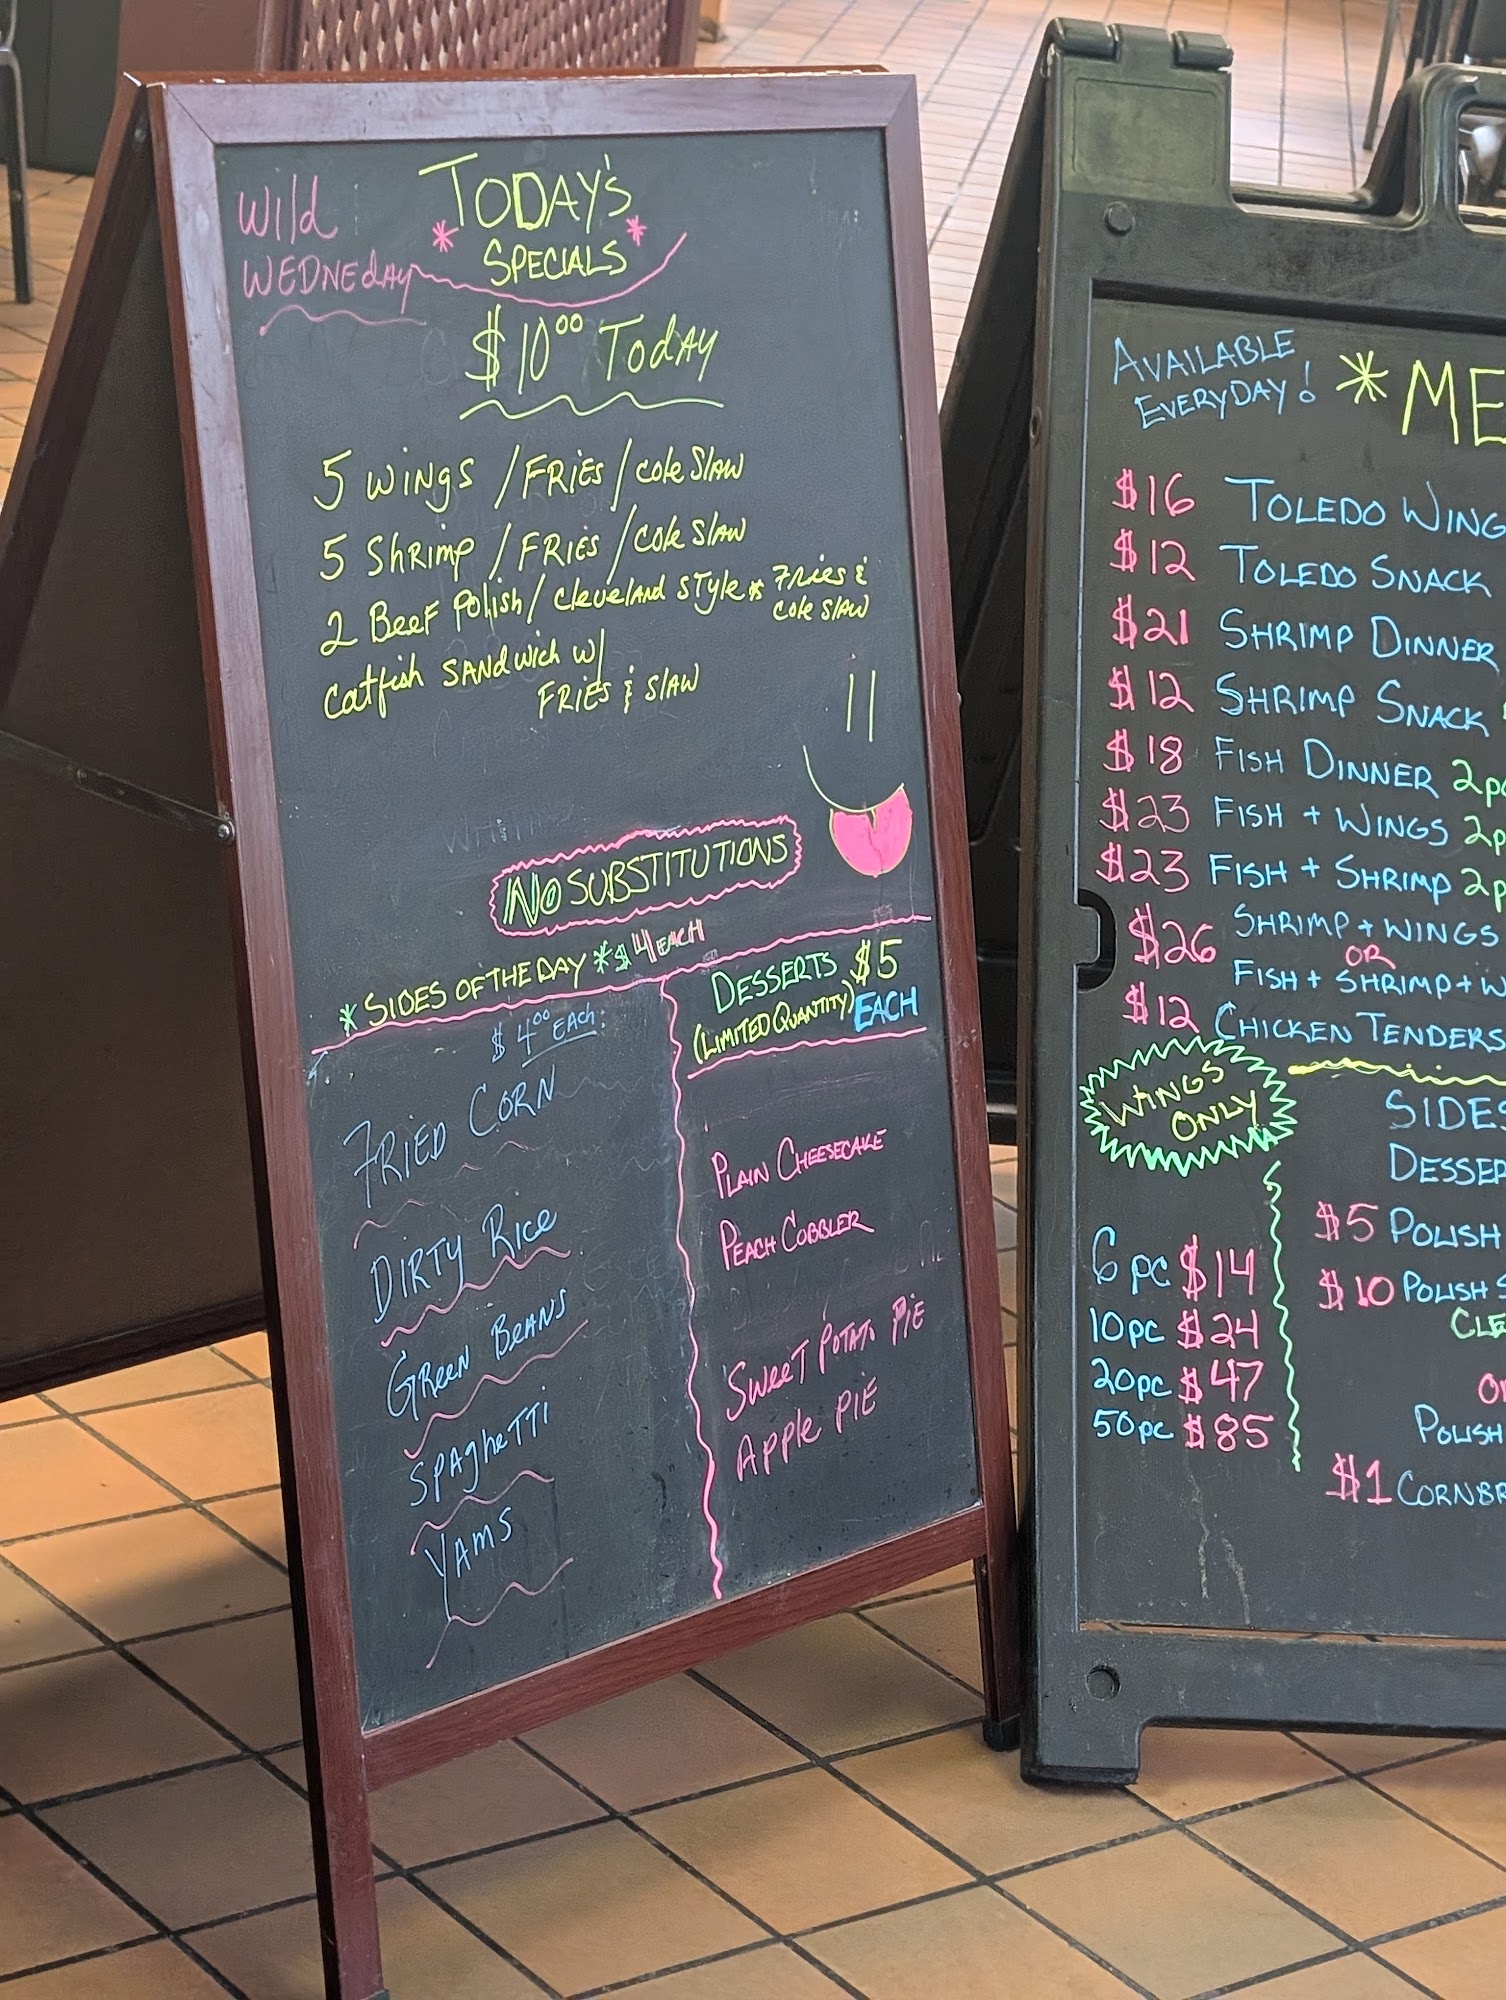 Wild
WEDNEdAY
TODAY'S
* SPECIALS *
$10⁰⁰ Today
5 wings / FRiES / cole Slaw
5 Shrimp / FRIES / Cole Slaw
2 Beef Polish / cleveland style * Fries &
cole slaw
catfish SANdwich w/
FRIES & SlAW
NO SUBSTITUTIONS
* SIDES OF THE DAY * $4 EACH
$4⁰⁰ EACH:
FRIED CORN
DIRTY Rice
GReen BeANS
SPAgheTTi
YAMS
DESSERTS $5
(LIMITED QUANTITY) EACH
PLAIN CHEESECAKE
PEACH COBBLER
SweeT POTATO PiE
Apple PIE
AVAILABLE
EVERYDAY!
* ME
$16 TOLEDO WING
$12 TOLEDO SNACK
$21 SHRIMP DINNER
$12 SHRIMP SNACK
$18 FISH DINNER 2pc
$23 FISH + WINGS 2p
$23 FISH + SHRIMP 2p
$26 SHRIMP + WINGS
OR
FISH + SHRIMP + W
$12 CHICKEN TENDERS
WINGS
ONLY
6 pc $14
10pc $24
20pc $47
50pc $85
SIDES
DESSER
$5 POLISH
$10 POLISH S
CLE
OR
POLISH
$1 CORNBR